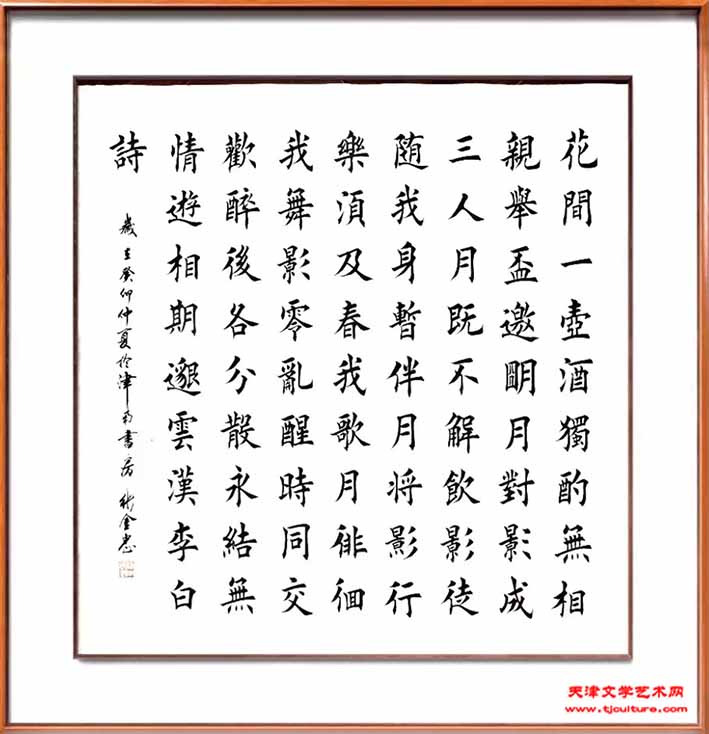 花間一壺酒獨酌無相
親舉盃邀朙月對影成
三人月既不解飲影徒
随我身暫伴月将影行
樂湏及春我歌月徘徊
我舞影零亂醒時同交
歡醉後各分散永結無
情遊相期邈雲漢李白
詩
歲在癸卯仲夏於津南書房 金忠
天津文学艺术网
www.tjculture.com